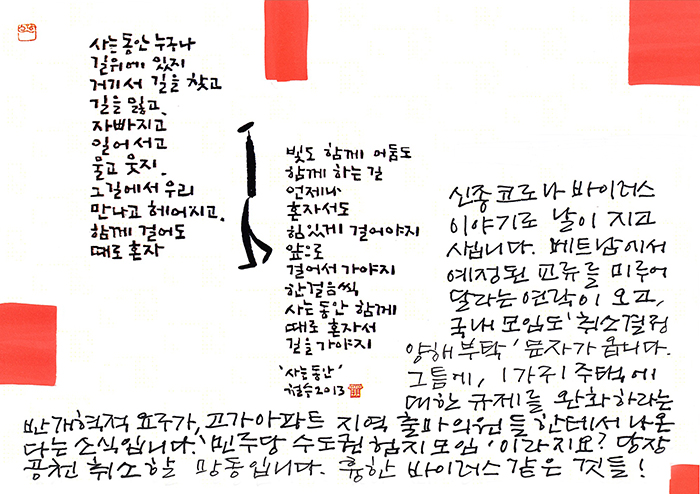 사는동안 누구나
길위에 있지
거기서 길을 찾고
길을 잃고,
자빠지고
일어서고
울고 웃지.
그길에서 우리
만나고 헤어지고,
함께 걸어도
때로 혼자
빛도 함께 어둠도
함께 하는 길
언제나
혼자서도
힘있게 걸어야지
앞으로
걸어서 가야지
한걸음씩
사는동안 함께
때로 혼자서
길을 가야지
'사는동안'
철수2013
신종 코로나 바이러스
이야기로 날이 지고
샙니다. 베트남에서
예정된 교류를 미루어
달라는 연락이 오고,
국내 모임도 '취소결정
양해 부탁' 문자가 옵니다.
그틈에, 1가구 1주택에
대한 규제를 완화하라는
반개혁적 요구가, 고가아파트 지역 출마의원들한테서 나온
다는 소식입니다. '민주당 수도권 험지모임'이라지요? 당장
공천 취소할 망동입니다. 흉한 바이러스 같은 것들!